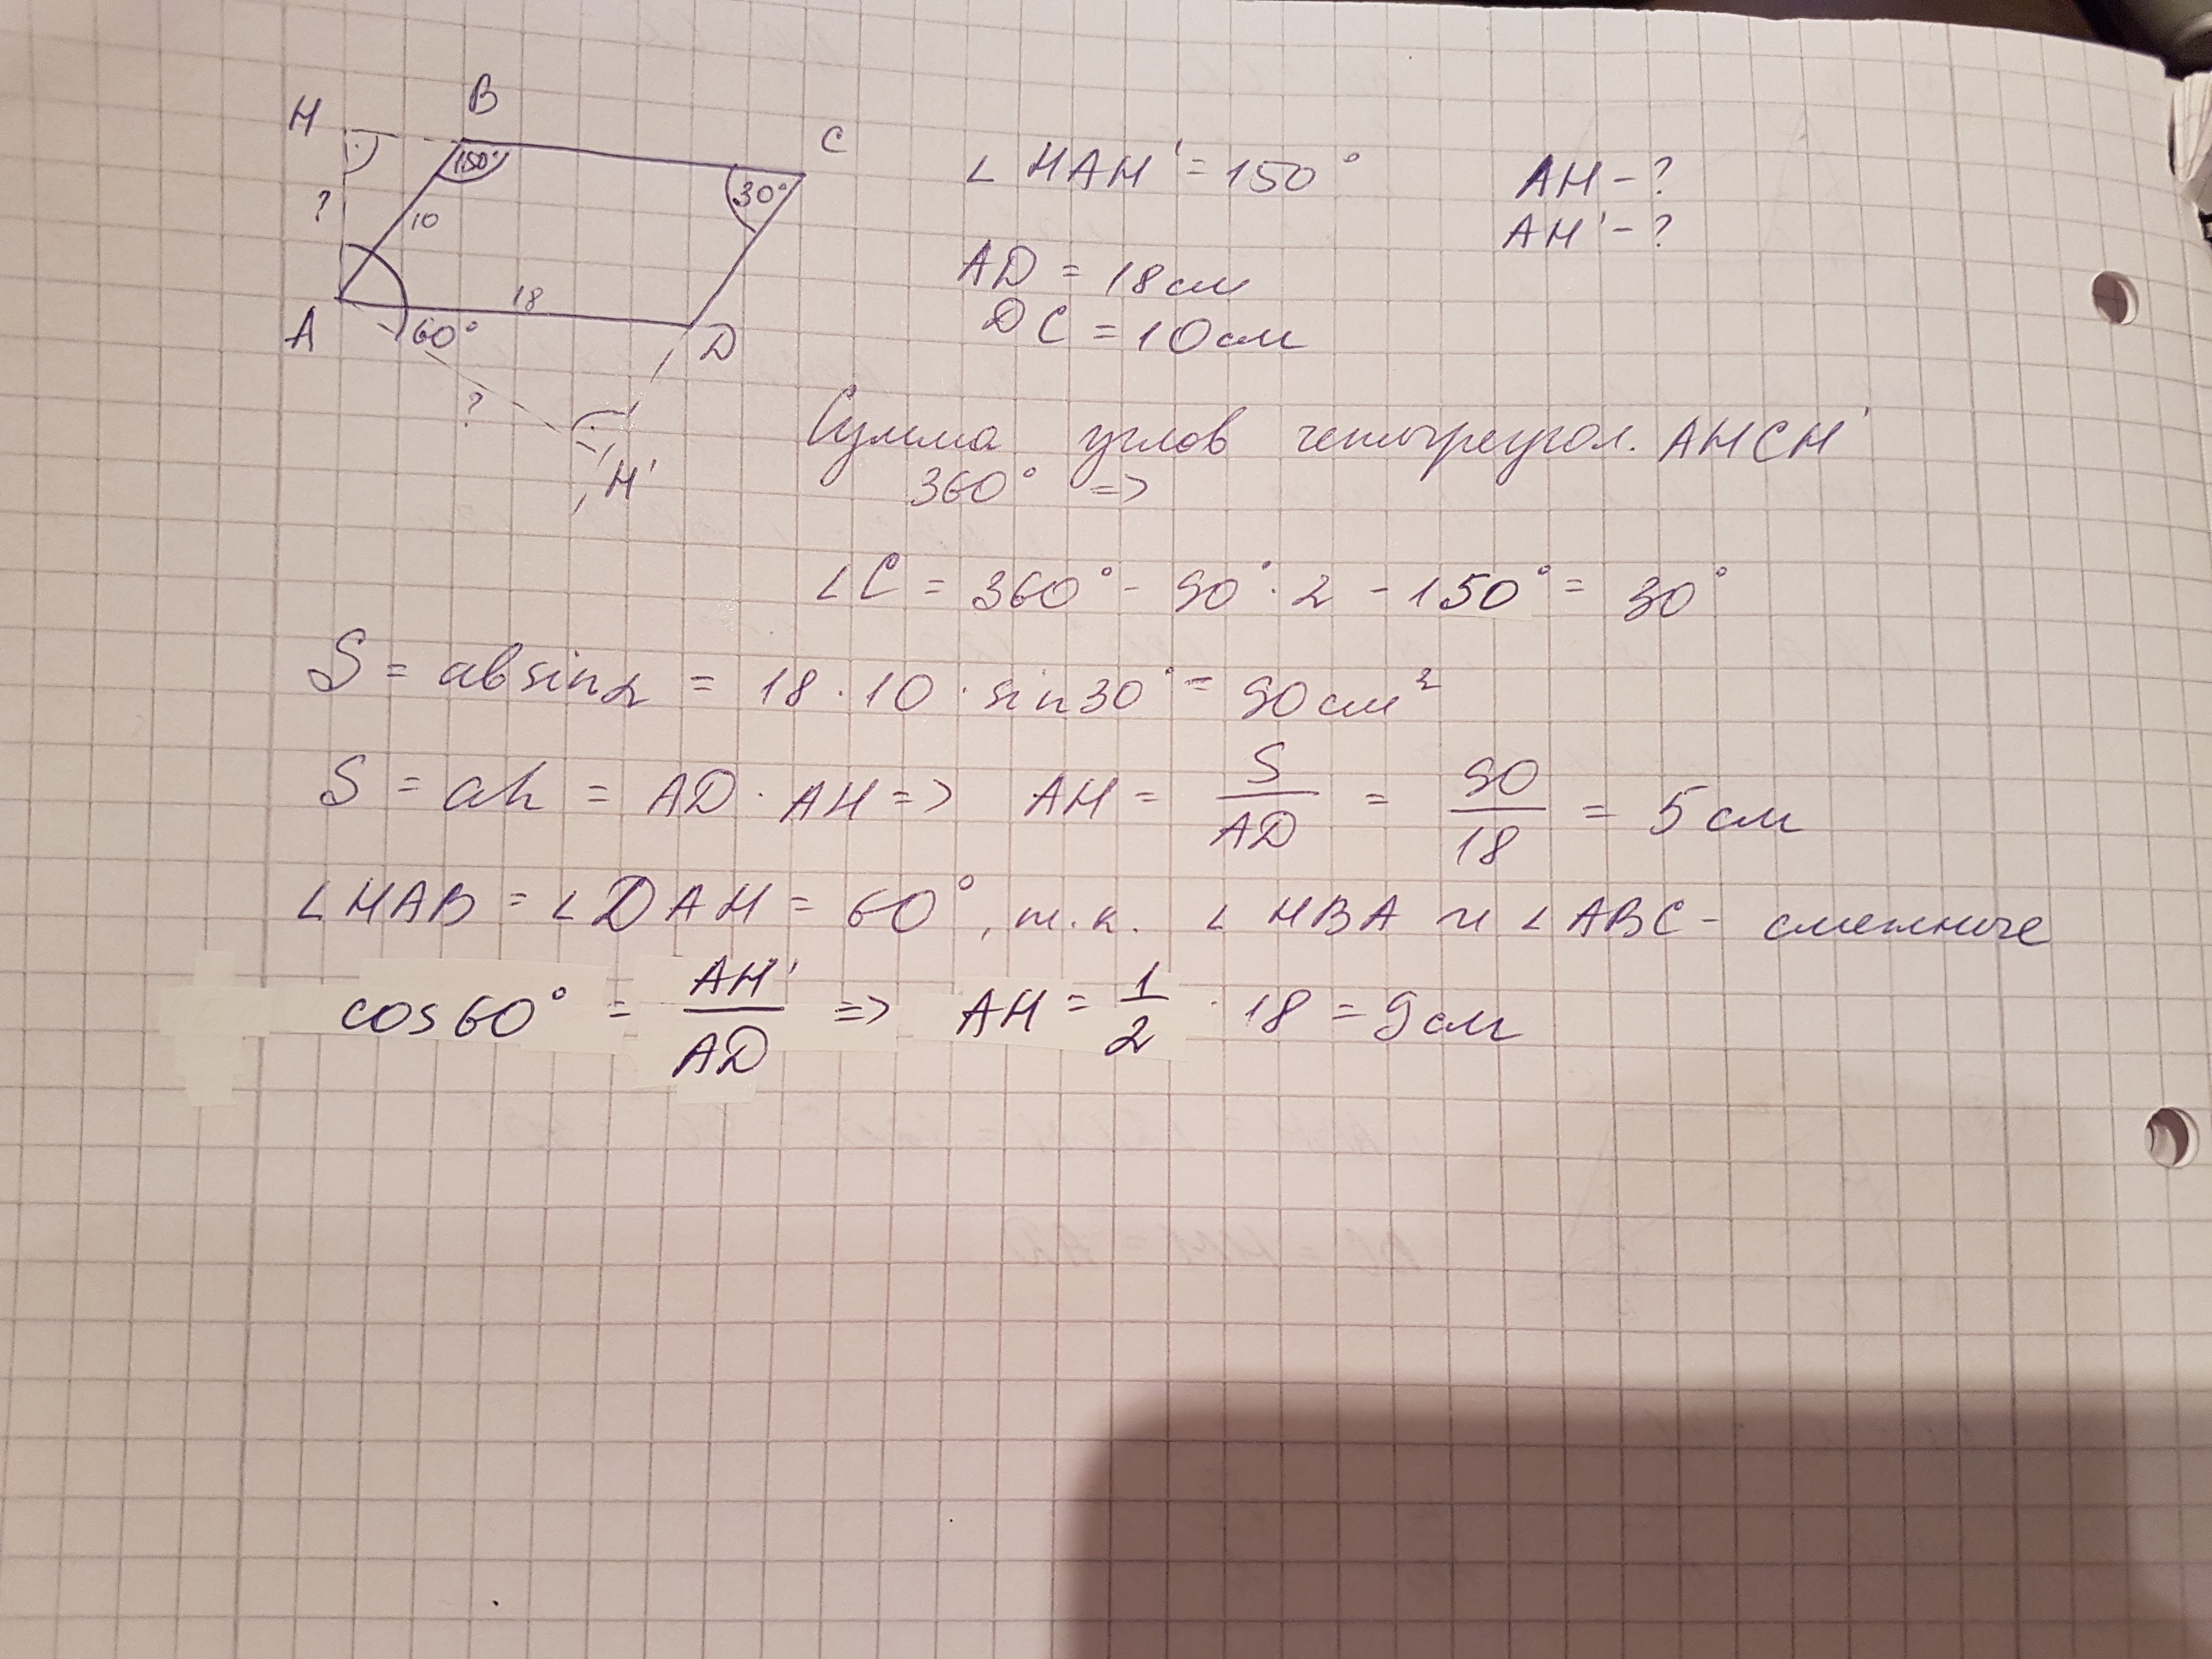 H
B
C
150°
30°
?
10
18
A
60°
D
?
H'
∠ HAH' = 150°
AH - ?
AH' - ?
AD = 18 см
DC = 10 см
Сумма углов четырехугол. AHCH'
360° =>
∠C = 360° - 90° · 2 - 150° = 30°
S = ab sin α = 18 · 10 · sin 30° = 90 см²
S = ah = AD · AH => AH = S/AD = 90/18 = 5 см
∠HAB = ∠DAH = 60°, т.к. ∠HBA и ∠ABC - смежные
cos 60° = AH'/AD => AH = 1/2 · 18 = 9 см